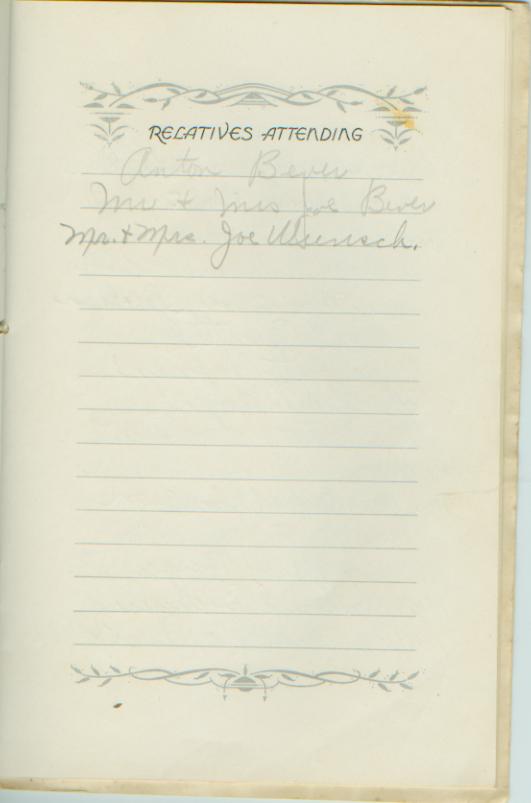 RELATIVES ATTENDING
Anton Bever
Mr + Mrs Joe Bever
Mr. + Mrs. Joe Wunsch.